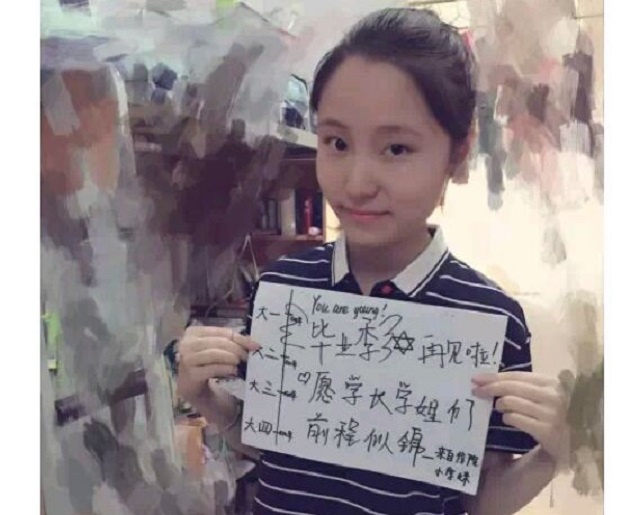 You are young!
大一 毕业季了 再见啦!
大二
大三 愿学长学姐们
大四 前程似锦
小学妹